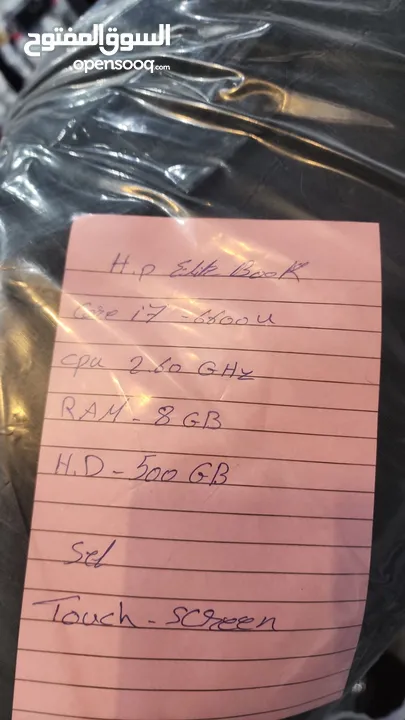 السوق المفتوح
opensooq.com
H.p Elite Book
Core i7 - 6600u
cpu 2.60 GHz
RAM - 8 GB
H.D - 500 GB
Touch - screen